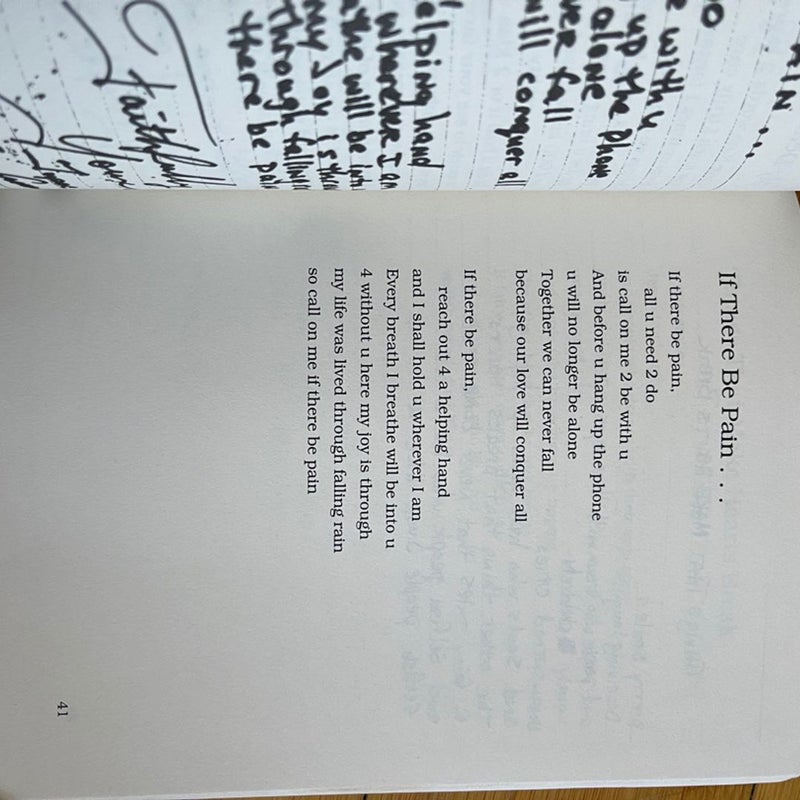 ...
with u
up the Phone
alone
fall
will conquer all
hand
wherever I am
will be
my Joy is
Through
there be pain
Faithfully
If There Be Pain . . .
If there be pain,
all u need 2 do
is call on me 2 be with u
And before u hang up the phone
u will no longer be alone
Together we can never fall
because our love will conquer all
If there be pain,
reach out 4 a helping hand
and I shall hold u wherever I am
Every breath I breathe will be into u
4 without u here my joy is through
my life was lived through falling rain
so call on me if there be pain
41